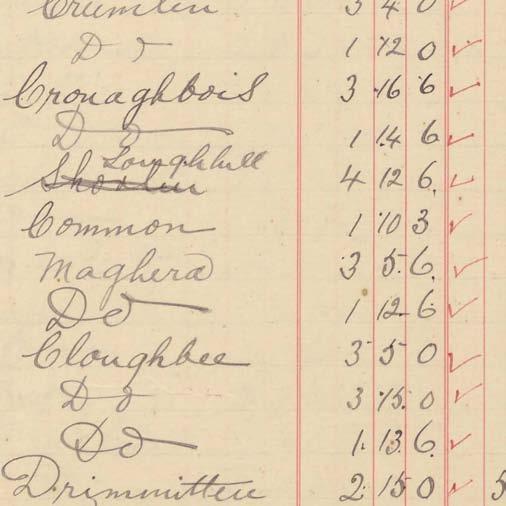 Crumlin 3 4 0 ✓
Do 1 12 0 ✓
Cronaghbois 3 16 6 ✓
Do 1 14 6 ✓
Loughhill
4 12 6 ✓
Common 1 10 3 ✓
Maghera 3 5 6 ✓
Do 1 12 6 ✓
Cloughbee 3 5 0 ✓
Do 3 15 0 ✓
Do 1 13 6 ✓
Drimmitten 2 15 0 ✓ 5